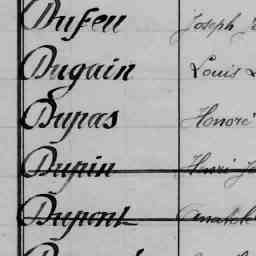 Dufeu Joseph
Dugain Louis
Dupas Honoré
Dupin Henri
Dupont Anatole